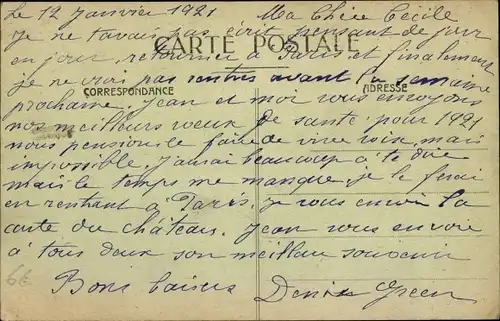 le 12 Janvier 1921 Ma Chère Cécile
je ne t'avais pas écrit pensant de jour
CARTE POSTALE
en jour retourner à Paris et finalement
je ne vrai pas rentrés avant la semaine
CORRESPONDANCE ADRESSE
prochaine. Jean et moi vous envoyons
nos meilleurs vœux de santé pour 1921
nous pensions le faire de vive voix, mais
impossible. J'aurai beaucoup à te dire
mais le temps me manque, je le ferai
en rentrant à Paris. Je vous envoie la
carte du château. Jean vous envoie
à tous deux son meilleur souvenir
Bons baisers Denise Green